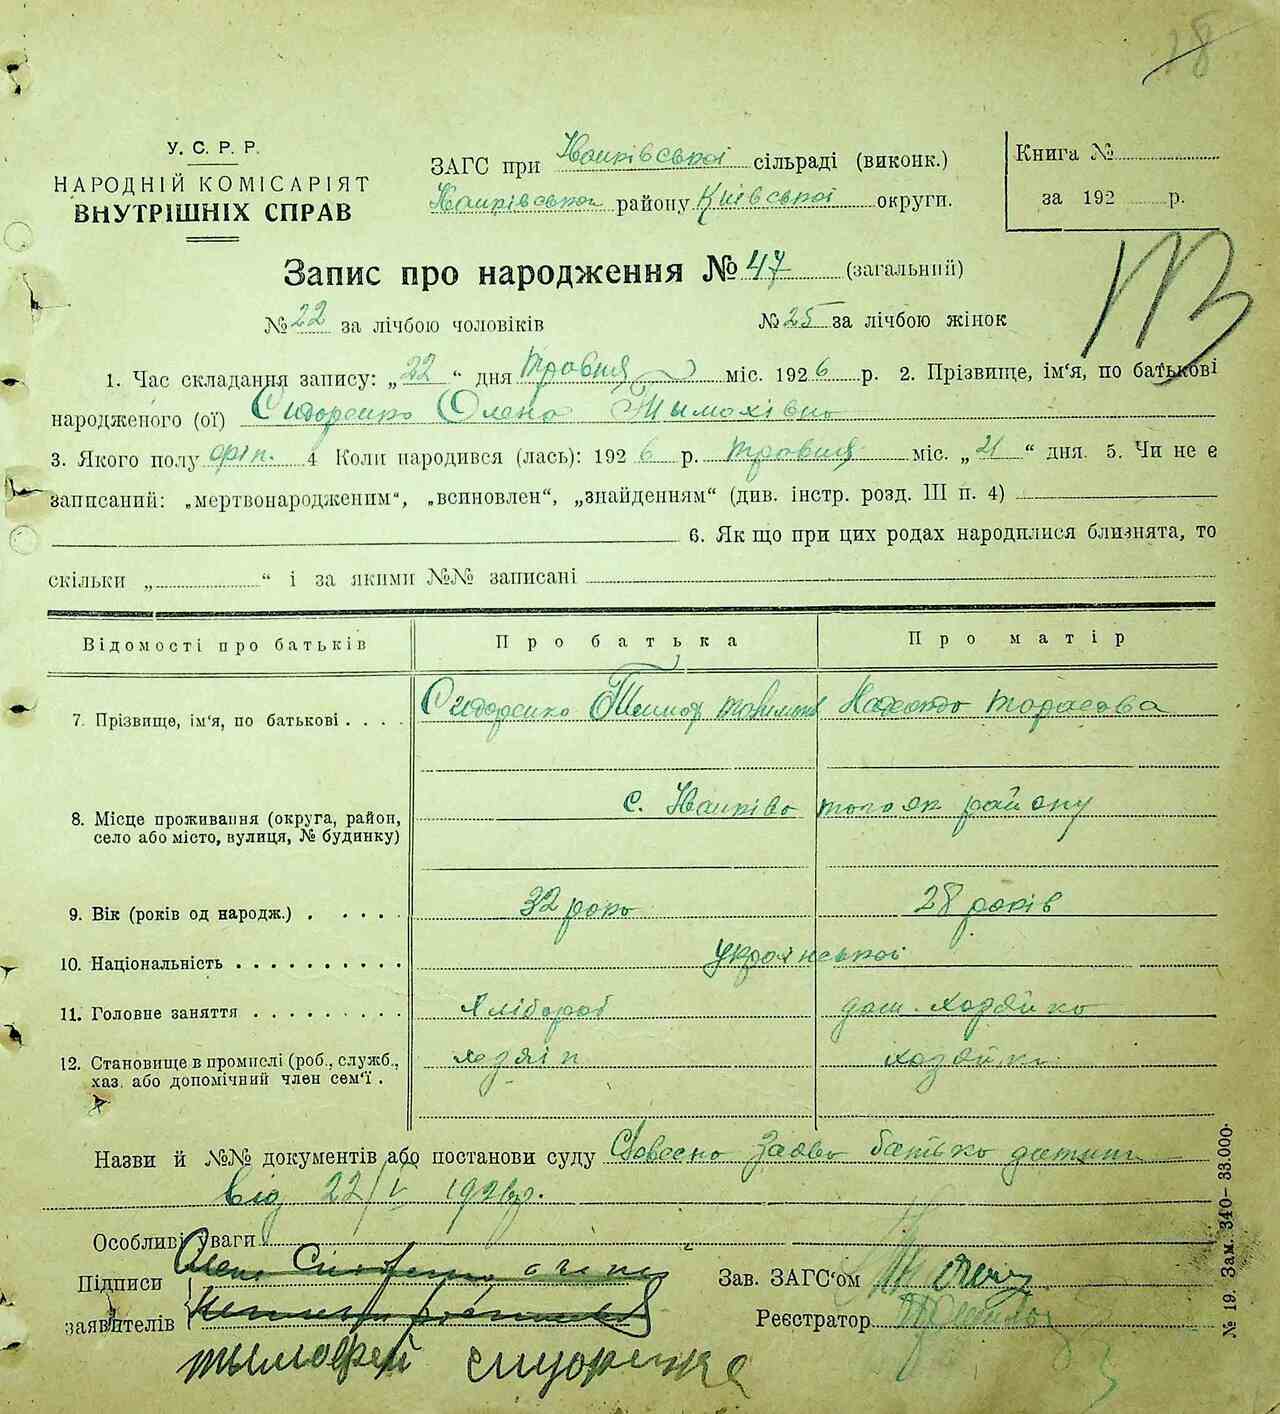 28
У. С. Р. Р.
НАРОДНІЙ КОМІСАРІЯТ
ВНУТРІШНІХ СПРАВ
ЗАГС при Іванківської сільраді (виконк.)
Іванківського району Київської округи.
Книга №
за 192 р.
Запис про народження № 47 (загальний)
№ 22 за лічбою чоловіків № 25 за лічбою жінок
1. Час складання запису: „22“ дня Травня міс. 1926 р. 2. Прізвище, ім'я, по батькові
народженого (ої) Сидоренко Олена Тимохівна
3. Якого полу жін. 4 Коли народився (лась): 1926 р. травня міс. „21“ дня. 5. Чи не є
записаний: „мертвонародженим“, „всиновлен“, „знайденням“ (див. інстр. розд. III п. 4)
6. Як що при цих родах народилися близнята, то
скільки „ “ і за якими №№ записані
Відомості про батьків Про батька Про матір
7. Прізвище, ім'я, по батькові . . . . Сидоренко Тимох Надежда Тарасовва
8. Місце проживання (округа, район,
село або місто, вулиця, № будинку)
с. Іванківо того ж району
9. Вік (років од народж.) . . . . . 32 роки 28 років
10. Національність . . . . . . . . . . української
11. Головне заняття . . . . . . . . . Хлібороб дом. хозяйка
12. Становище в промислі (роб., служб.,
хаз. або допомічний член сем'ї .
хозяїн хозяйка
Назви й №№ документів або постанови суду Словесна заява батька дитини
від 22/V 1926р.
Особливі уваги
Підписи
заявителів
Зав. ЗАГС'ом
Реєстратор
тымофей сидоренко
№ 19. Зам. 340– 33.000·